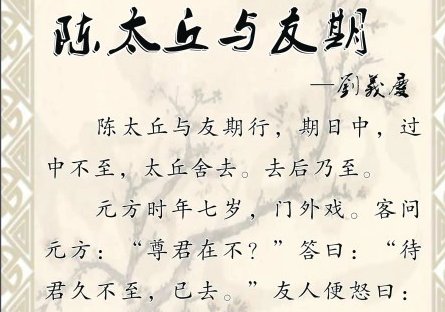 陈太丘与友期
—劉義慶
陈太丘与友期行，期日中，过
中不至，太丘舍去。去后乃至。
元方时年七岁，门外戏。客问
元方：“尊君在不？”答曰：“待
君久不至，已去。”友人便怒曰：